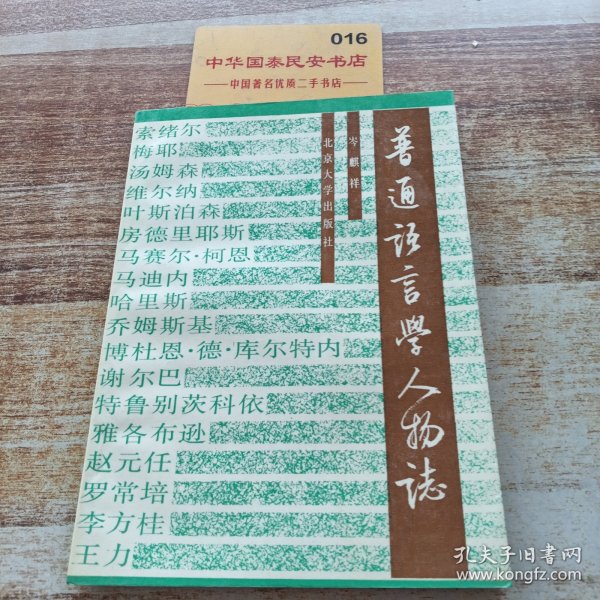 016
中华国泰民安书店
——中国著名优质二手书店——
普通语言學人物誌
岑麒祥
北京大学出版社
索绪尔
梅耶
汤姆森
维尔纳
叶斯泊森
房德里耶斯
马赛尔·柯恩
马迪内
哈里斯
乔姆斯基
博杜恩·德·库尔特内
谢尔巴
特鲁别茨科依
雅各布逊
赵元任
罗常培
李方桂
王力
孔夫子旧书网
www.kongfz.com